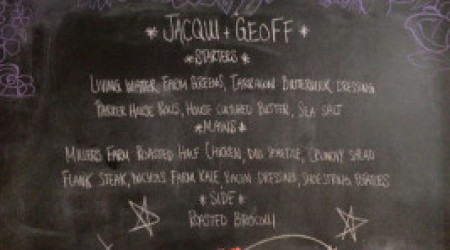 * JACQUI + GEOFF *
* STARTERS *
LIVING WATER FARM GREENS, TARRAGON BUTTERMILK DRESSING
PARKER HOUSE ROLLS, HOUSE CULTURED BUTTER, SEA SALT
* MAINS *
MILLERS FARM ROASTED HALF CHICKEN, DILL SPAETZLE, CRUNCHY SALAD
FLANK STEAK, NICHOLS FARM KALE BACON DRESSING, SHOESTRING POTATOES
* SIDE *
ROASTED BROCCOLI